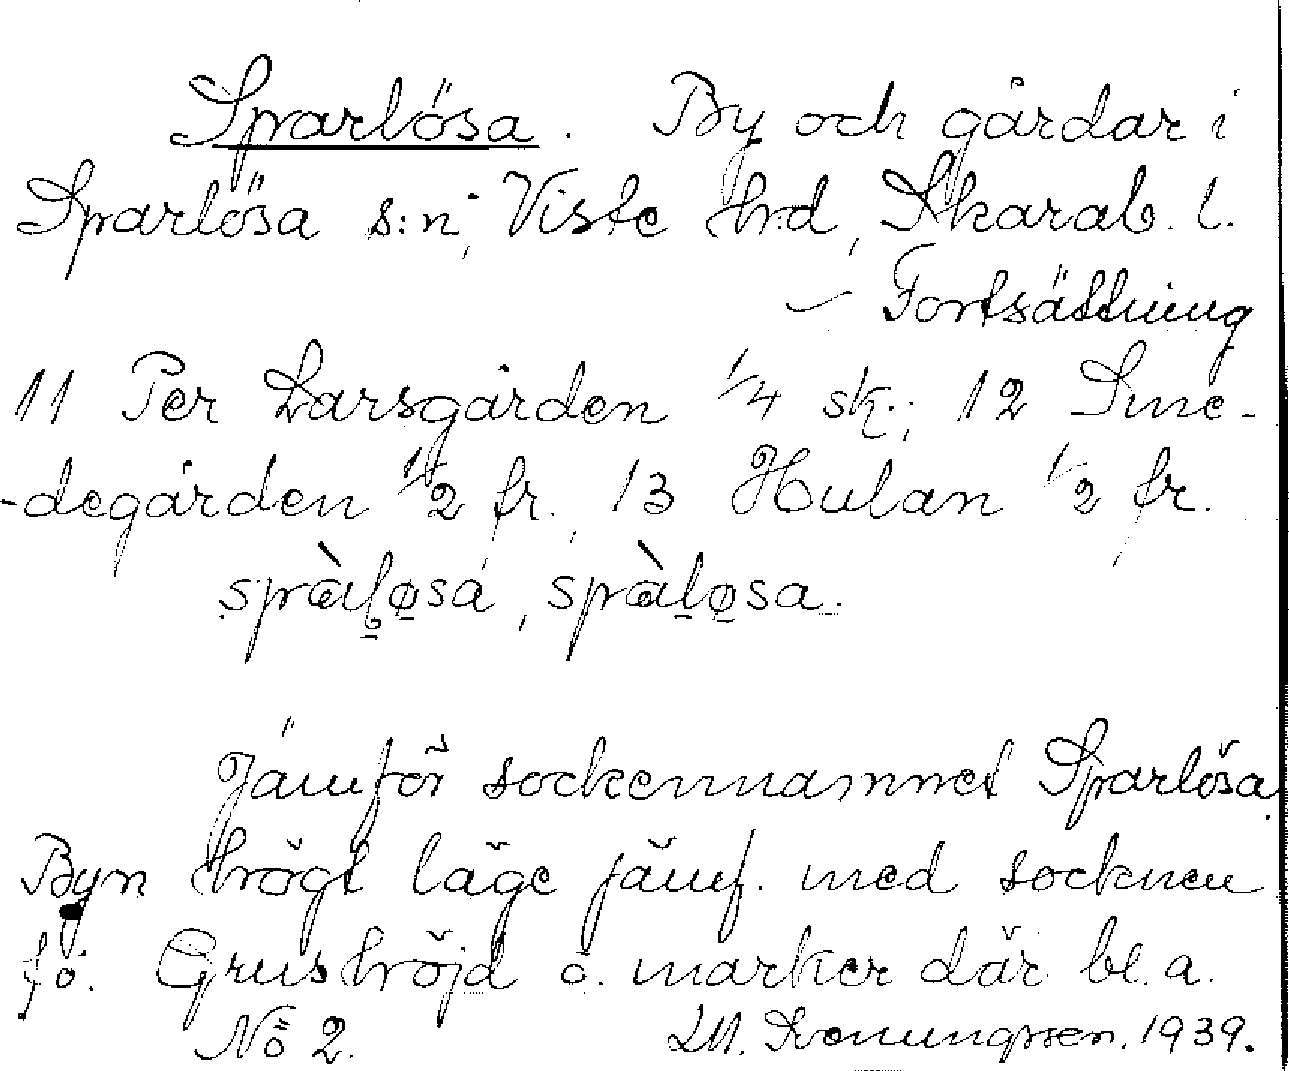 Sparlösa. By och gårdar i
Sparlösa s:n, Viste hrd, Skarab. l.
– Fortsättning
11 Per Larsgården 1/4 sk.; 12 Sme-
-degården 1/2 fr., 13 Hulan 1/2 fr.
Jämför sockennamnet Sparlösa.
Byn högt läge jämf. med socknen
f.ö. Grushöjd o. marker där bl.a.
Nö 2. 1939.